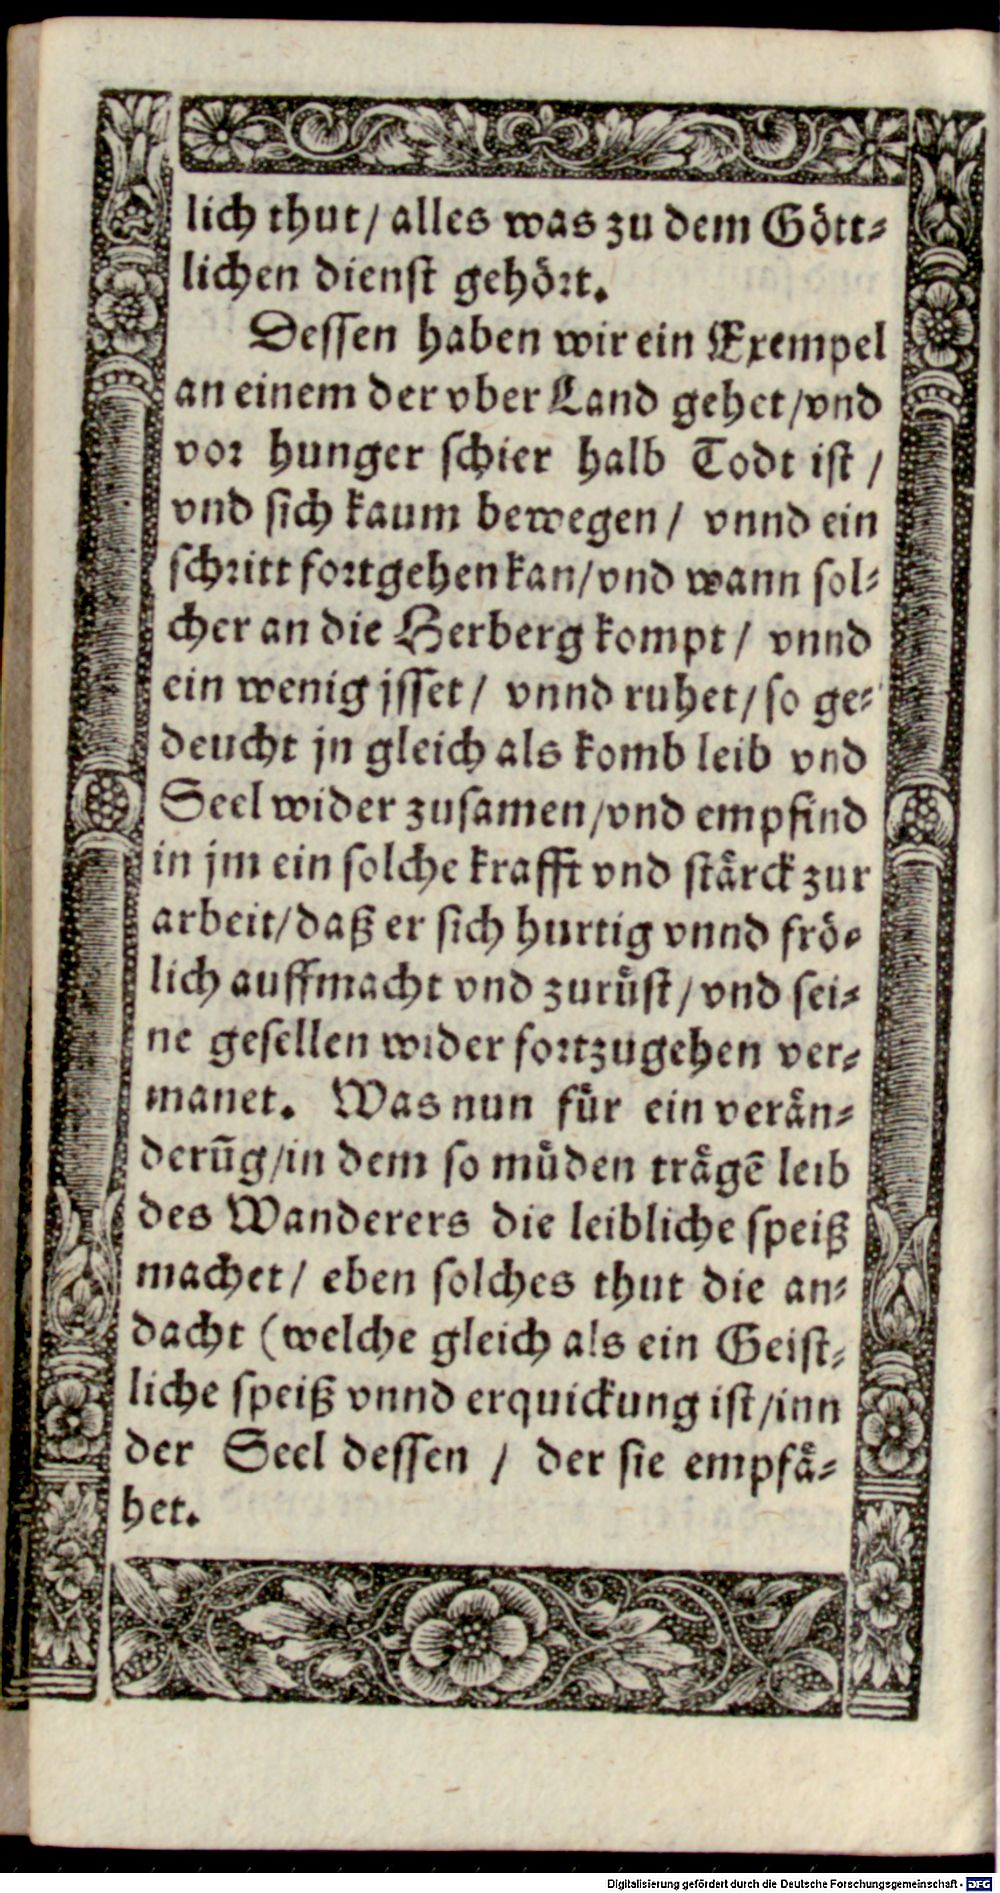 lich thut / alles was zu dem Gött-
lichen dienst gehört.
Dessen haben wir ein Exempel
an einem der vber Land gehet / vnd
vor hunger schier halb Todt ist /
vnd sich kaum bewegen / vnnd ein
schritt fortgehen kan / vnd wann sol-
cher an die Herberg kompt / vnnd
ein wenig jsset / vnnd ruhet / so ge-
deucht jn gleich als komb leib vnd
Seel wider zusamen / vnd empfind
in jm ein solche krafft vnd stärck zur
arbeit / daß er sich hurtig vnnd frö-
lich auffmacht vnd zurüst / vnd sei-
ne gesellen wider fortzugehen ver-
manet. Was nun für ein verän-
derũg / in dem so müden trägẽ leib
des Wanderers die leibliche speiß
machet / eben solches thut die an-
dacht (welche gleich als ein Geist-
liche speiß vnnd erquickung ist / inn
der Seel dessen / der sie empfä-
het.
Digitalisierung gefördert durch die Deutsche Forschungsgemeinschaft - DFG